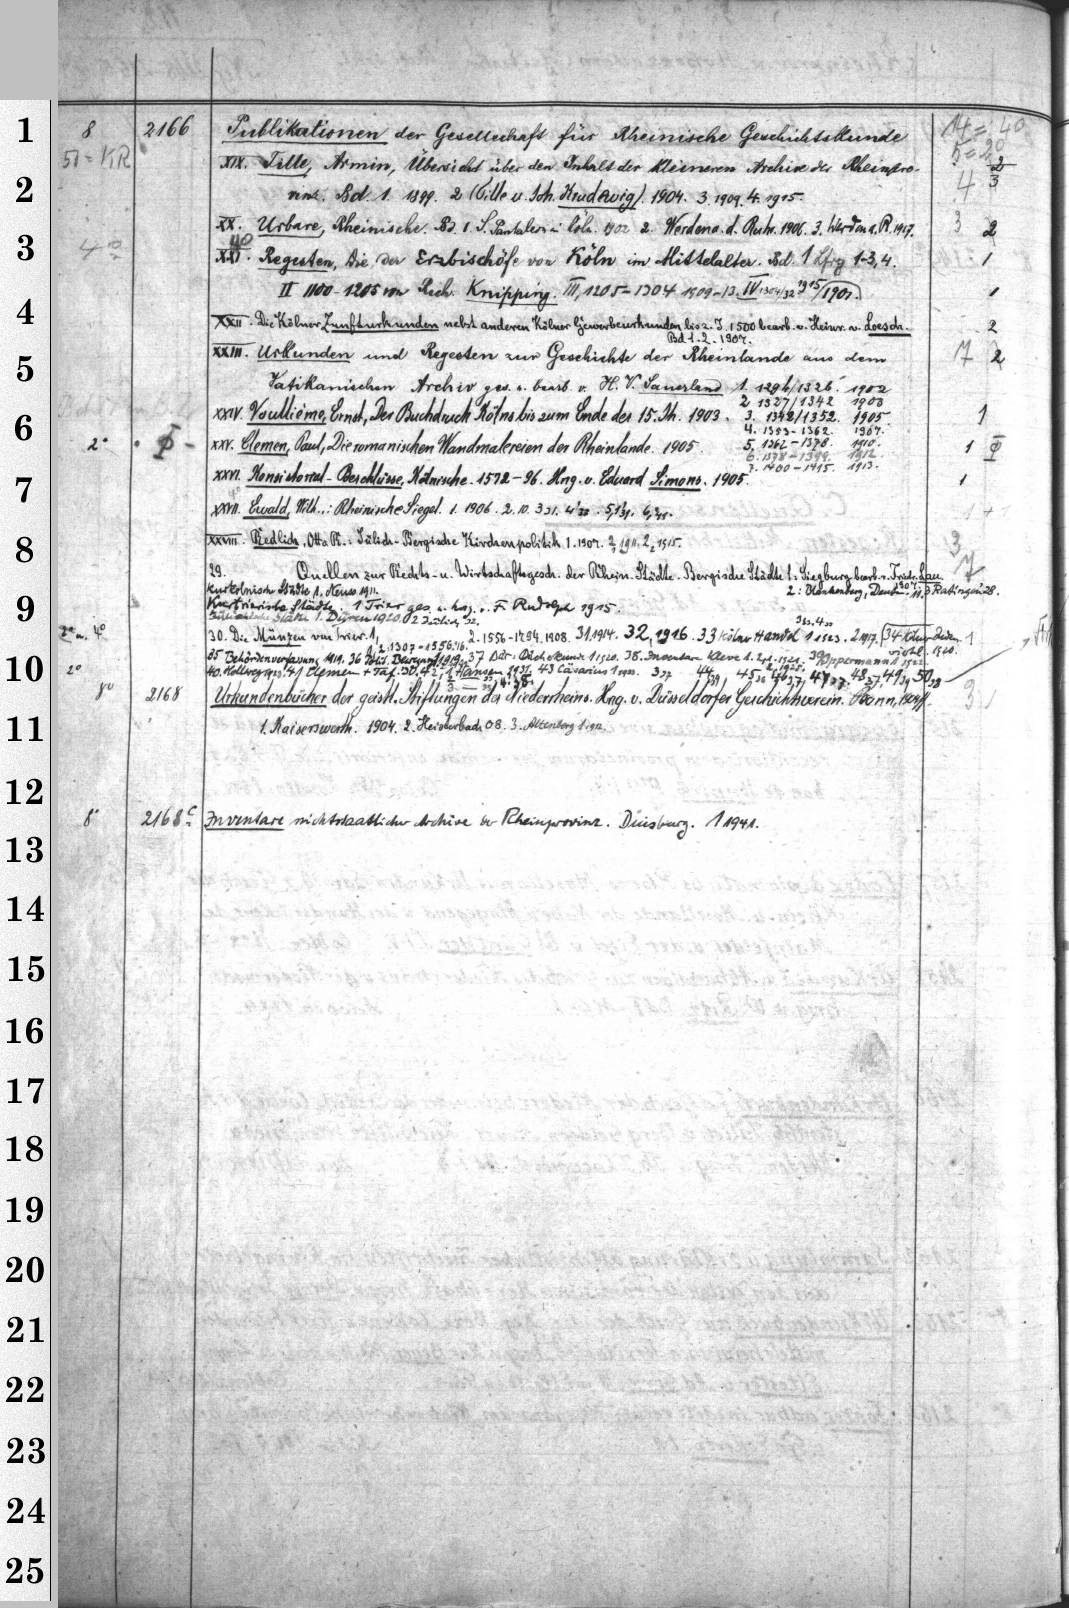 1 8 2166 Publikationen der Gesellschaft für Rheinische Geschichtskunde 14 = 4°
51 = KR 5 = 2°
XIX. Tille, Armin, Übersicht über den Inhalt der kleineren Archive der Rheinpro- 2
2 vinz. Bd. 1. 1899. 2 (Tille u. Joh. Krudewig) 1904. 3. 1909. 4. 1915. 4 3
XX. Urbare, Rheinische. Bd. 1. S. Pantaleon i. Cöln. 1902 2. Werden a. d. Ruhr. 1906. 3. Werden a. R. 1917. 3 2
3 4° XXI. Regesten, Die, der Erzbischöfe von Köln im Mittelalter. Bd. 1 Lfrg 1-3, 4. 1
II 1100-1205 von Rich. Knipping. III, 1205-1304 1909-13. IV 1304/32 1915 /1901. 1
4 XXII. Die Kölner Zunfturkunden nebst anderen Kölner Gewerbeurkunden bis z. J. 1500 bearb. v. Heinr. v. Loesch. 2
Bd 1. 2. 1907.
5 XXIII. Urkunden und Regesten zur Geschichte der Rheinlande aus dem 17 2
Vatikanischen Archiv ges. u. bearb. v. H. V. Sauerland 1. 1294/1326. 1902
2. 1327/1342 1903
6 XXIV. Voulliéme, Ernst, Der Buchdruck Kölns bis zum Ende des 15. Jh. 1903. 3. 1342/1352. 1905 1
4. 1353-1362. 1907.
2° XXV. Clemen, Paul, Die romanischen Wandmalereien der Rheinlande. 1905. 5. 1362-1378. 1910. 1 I
6. 1378-1399. 1912.
7. 1400-1415. 1913.
7 XXVI. Konsistorial-Beschlüsse, Kölnische. 1572-96. Hng. v. Eduard Simons. 1905. 1
4° XXVII. Ewald, Wilh.: Rheinische Siegel. 1. 1906. 2. 10. 3 31. 1 + 1
8 XXVIII. Redlich, Otto R.: Jülich-Bergische Kirchenpolitik 1. 1907. 2, 1911. 2, 1915. 3
29. Quellen zur Rechts- u. Wirtschaftsgesch. der Rhein. Städte. Bergische Städte 1: Siegburg bearb. v. Friedr. Lau. 7
1907 2: Blankenberg, Deutz 3 Ratingen 28.
Kurkölnische Städte 1, Neuss 1911.
9 Kurtrierische Städte. 1 Trier ges. u. hrg. v. F. Rudolph 1915.
Jülicher Städte 1. Düren 1920. 2 Jülich 32.
2° u. 4° 30. Die Münzen von Trier. 1, 2. 1556-1794. 1908. 31. 1914. 32, 1916. 33 Kölner Handel 1 1923. 2 1917. 34 1
1, 2. 1307-1556. 16.
35 Behördenverfassung 1919. 36 1919. 37 38. Inventare Kleve 1. 39 Oppermann 1 1922.
10 2° 40. 1923. 41 Clemen + Taf. 30. 42, Hansen 1931. 43 Cäsarius 1 1933. 3 37 44 39, 45 46 37, 47 37, 48 37, 49 39 50 38
g° 2168 Urkundenbücher der geistl. Stiftungen des Niederrheins. Hng. v. Düsseldorfer Geschichtsverein. Bonn, 1904ff. 3
11 1. Kaiserswerth. 1904. 2. Heisterbach 08. 3. Altenberg 1.
12 8° 2168c Inventare nichtstaatlicher Archive der Rheinprovinz. Duisburg. 1 1941.
13
14
15
16
17
18
19
20
21
22
23
24
25